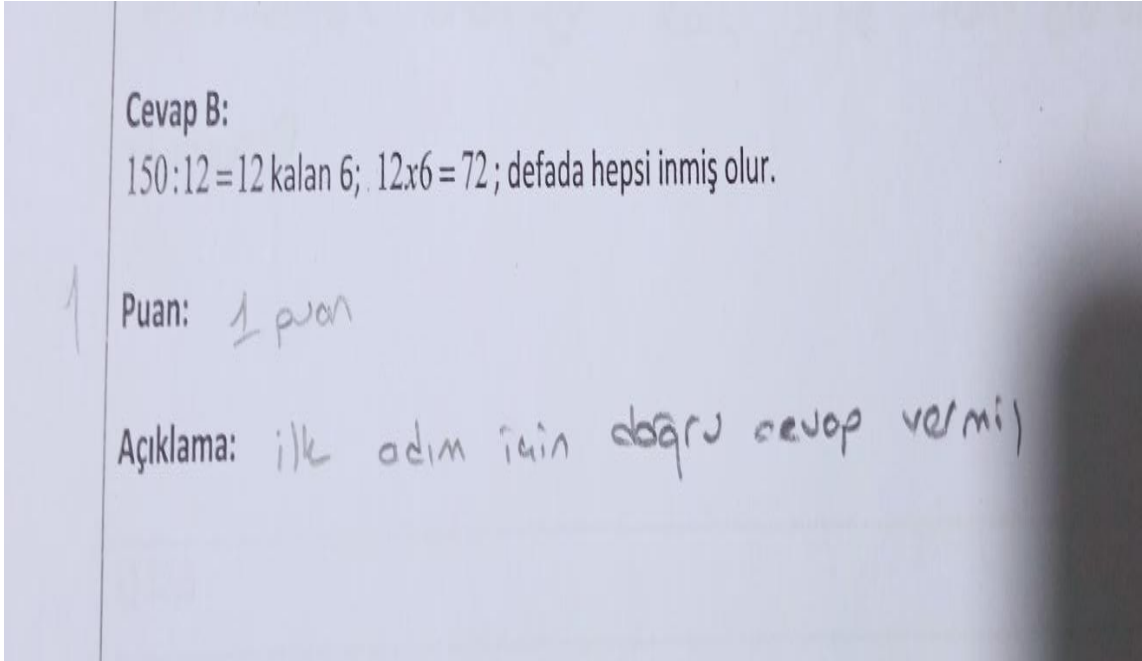 Cevap B:
150:12=12 kalan 6; 12x6=72; defada hepsi inmiş olur.
1
Puan: 1 puan
Açıklama: ilk adım için doğru cevap vermiş